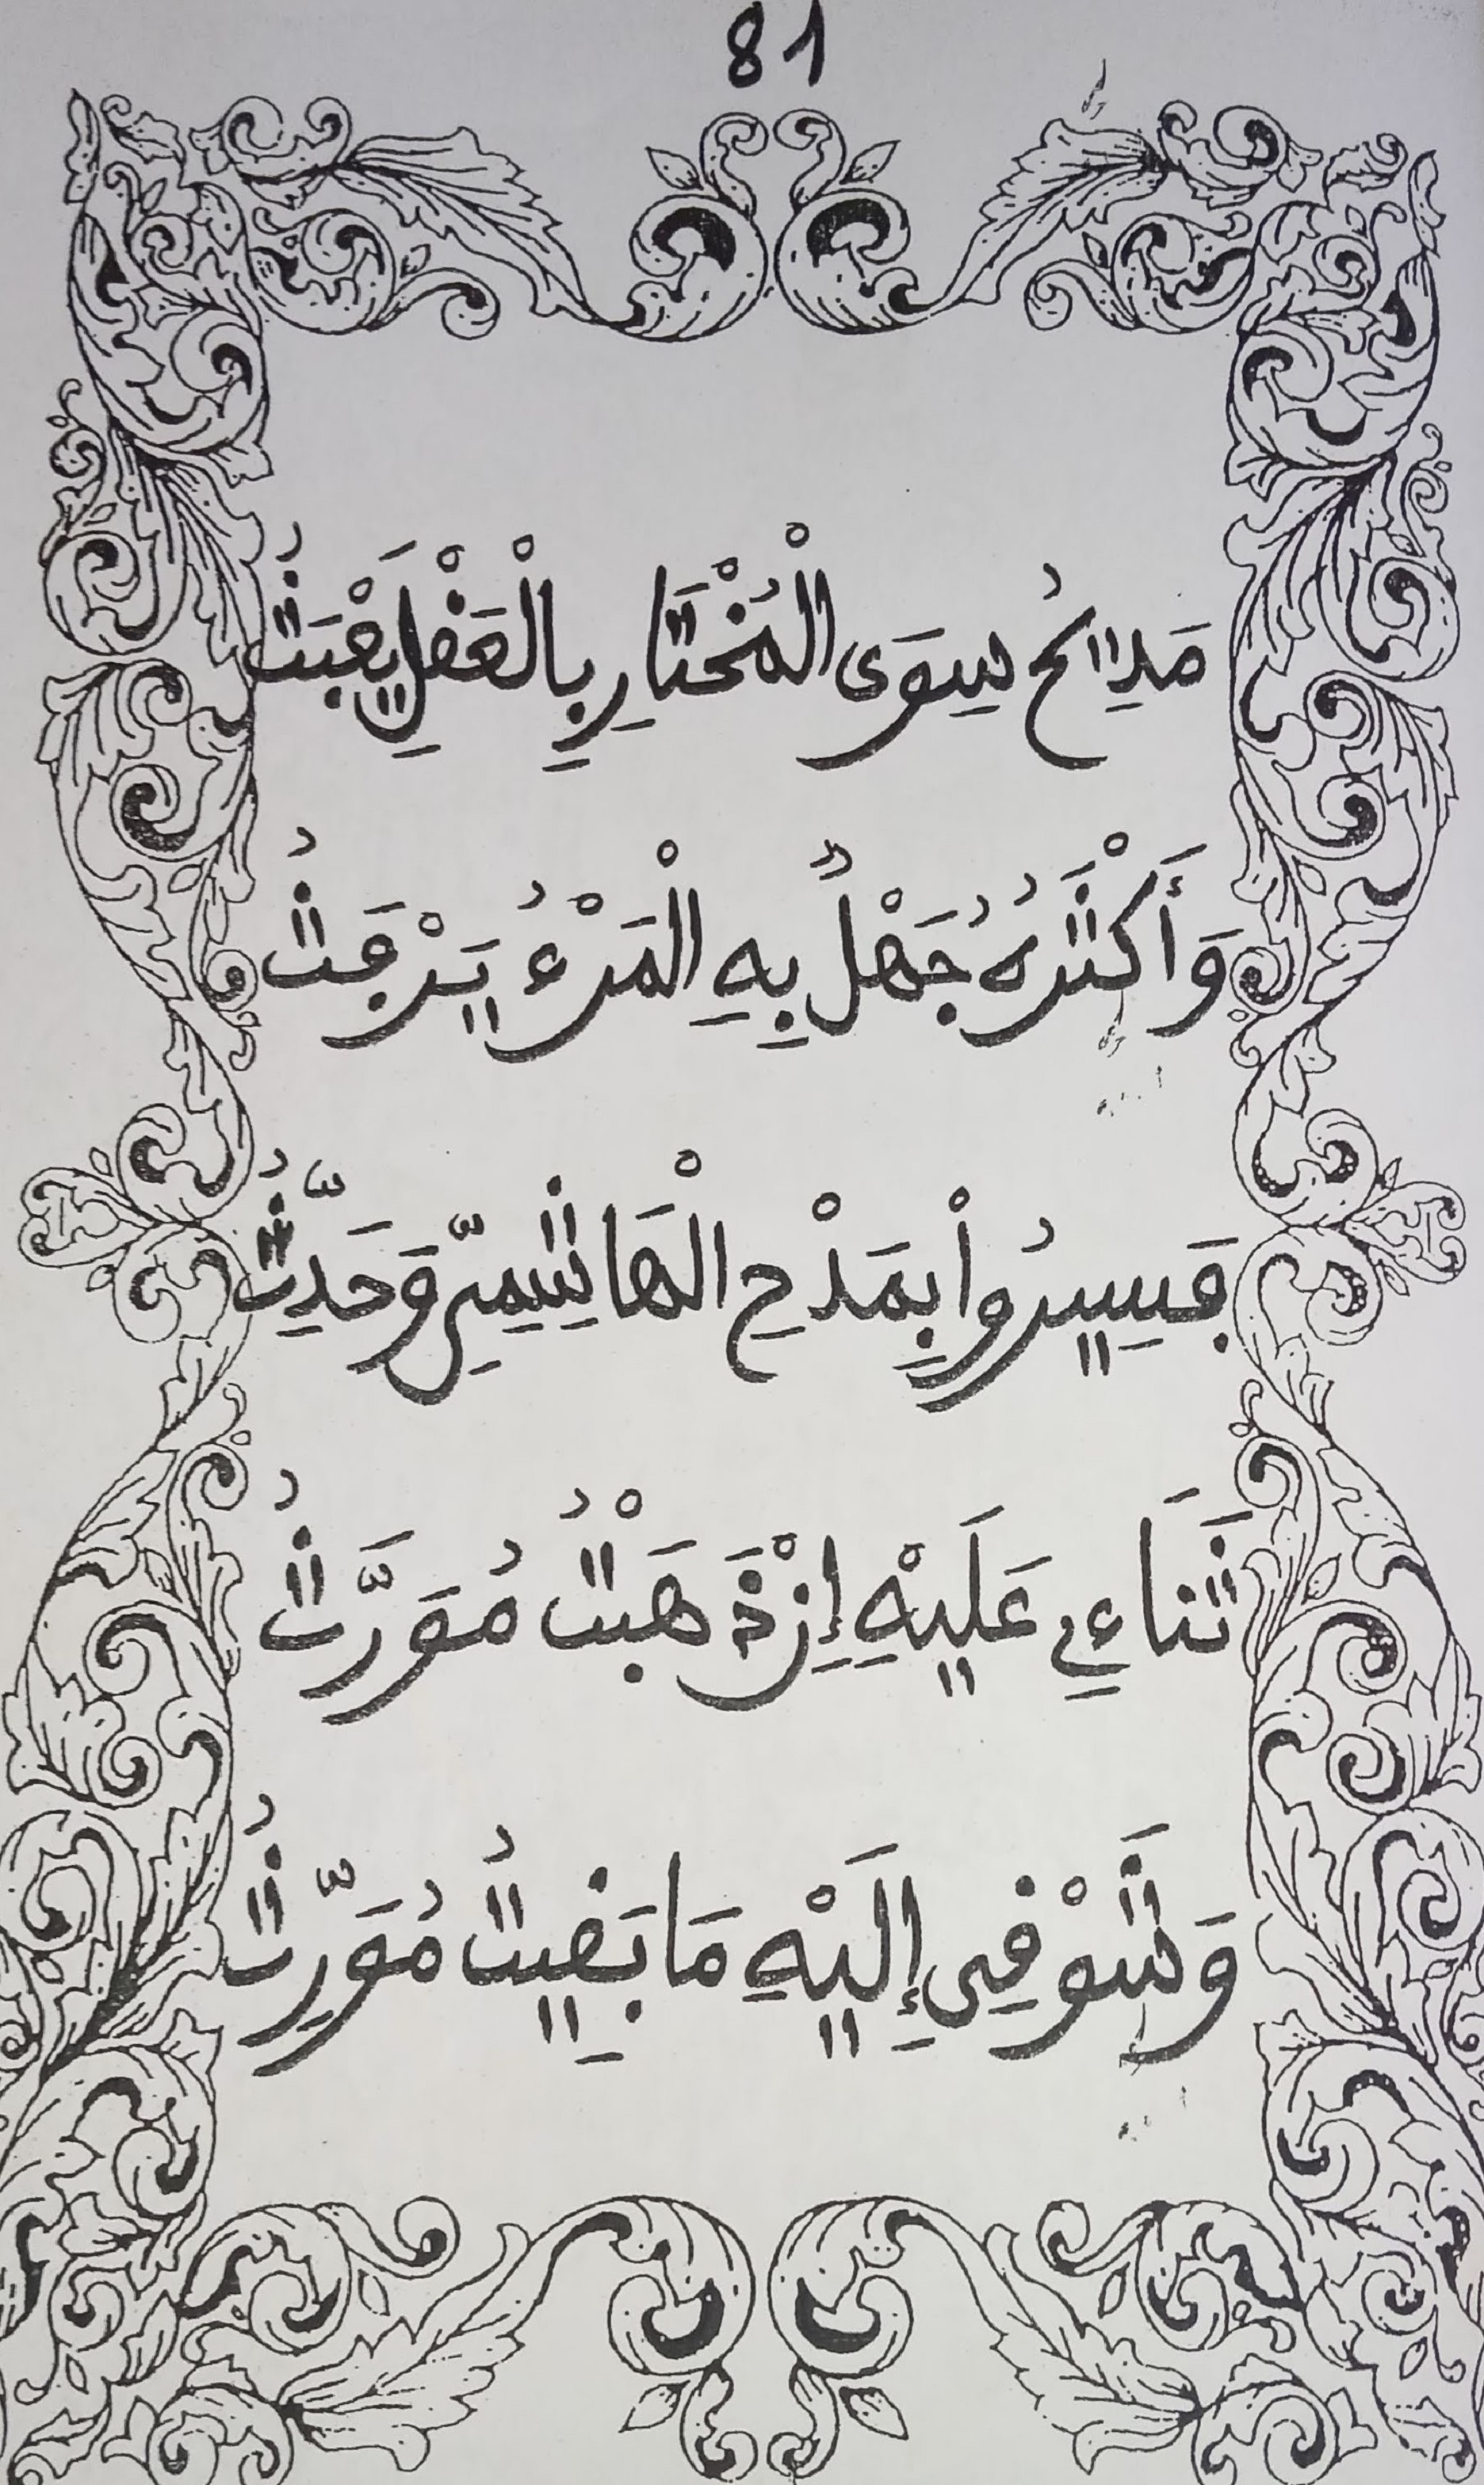 81
مَدَائِحُ سِوَى الْمُخْتَارِ بِالْعَقْلِ يَعْبَثُ
وَأَكْثَرُهُ جَهْلٌ بِهِ الْمَرْءُ يَرْفَثُ
فَسِيرُواْ بِمَدْحِ الْهَاشِمِيِّ وَحَدِّثُ
ثَنَاءِي عَلَيْهِ إِنْ ذَهَبْتُ مُوَرَّثُ
وَشَوْقِي إِلَيْهِ مَا بَقِيتُ مُوَرِّثُ